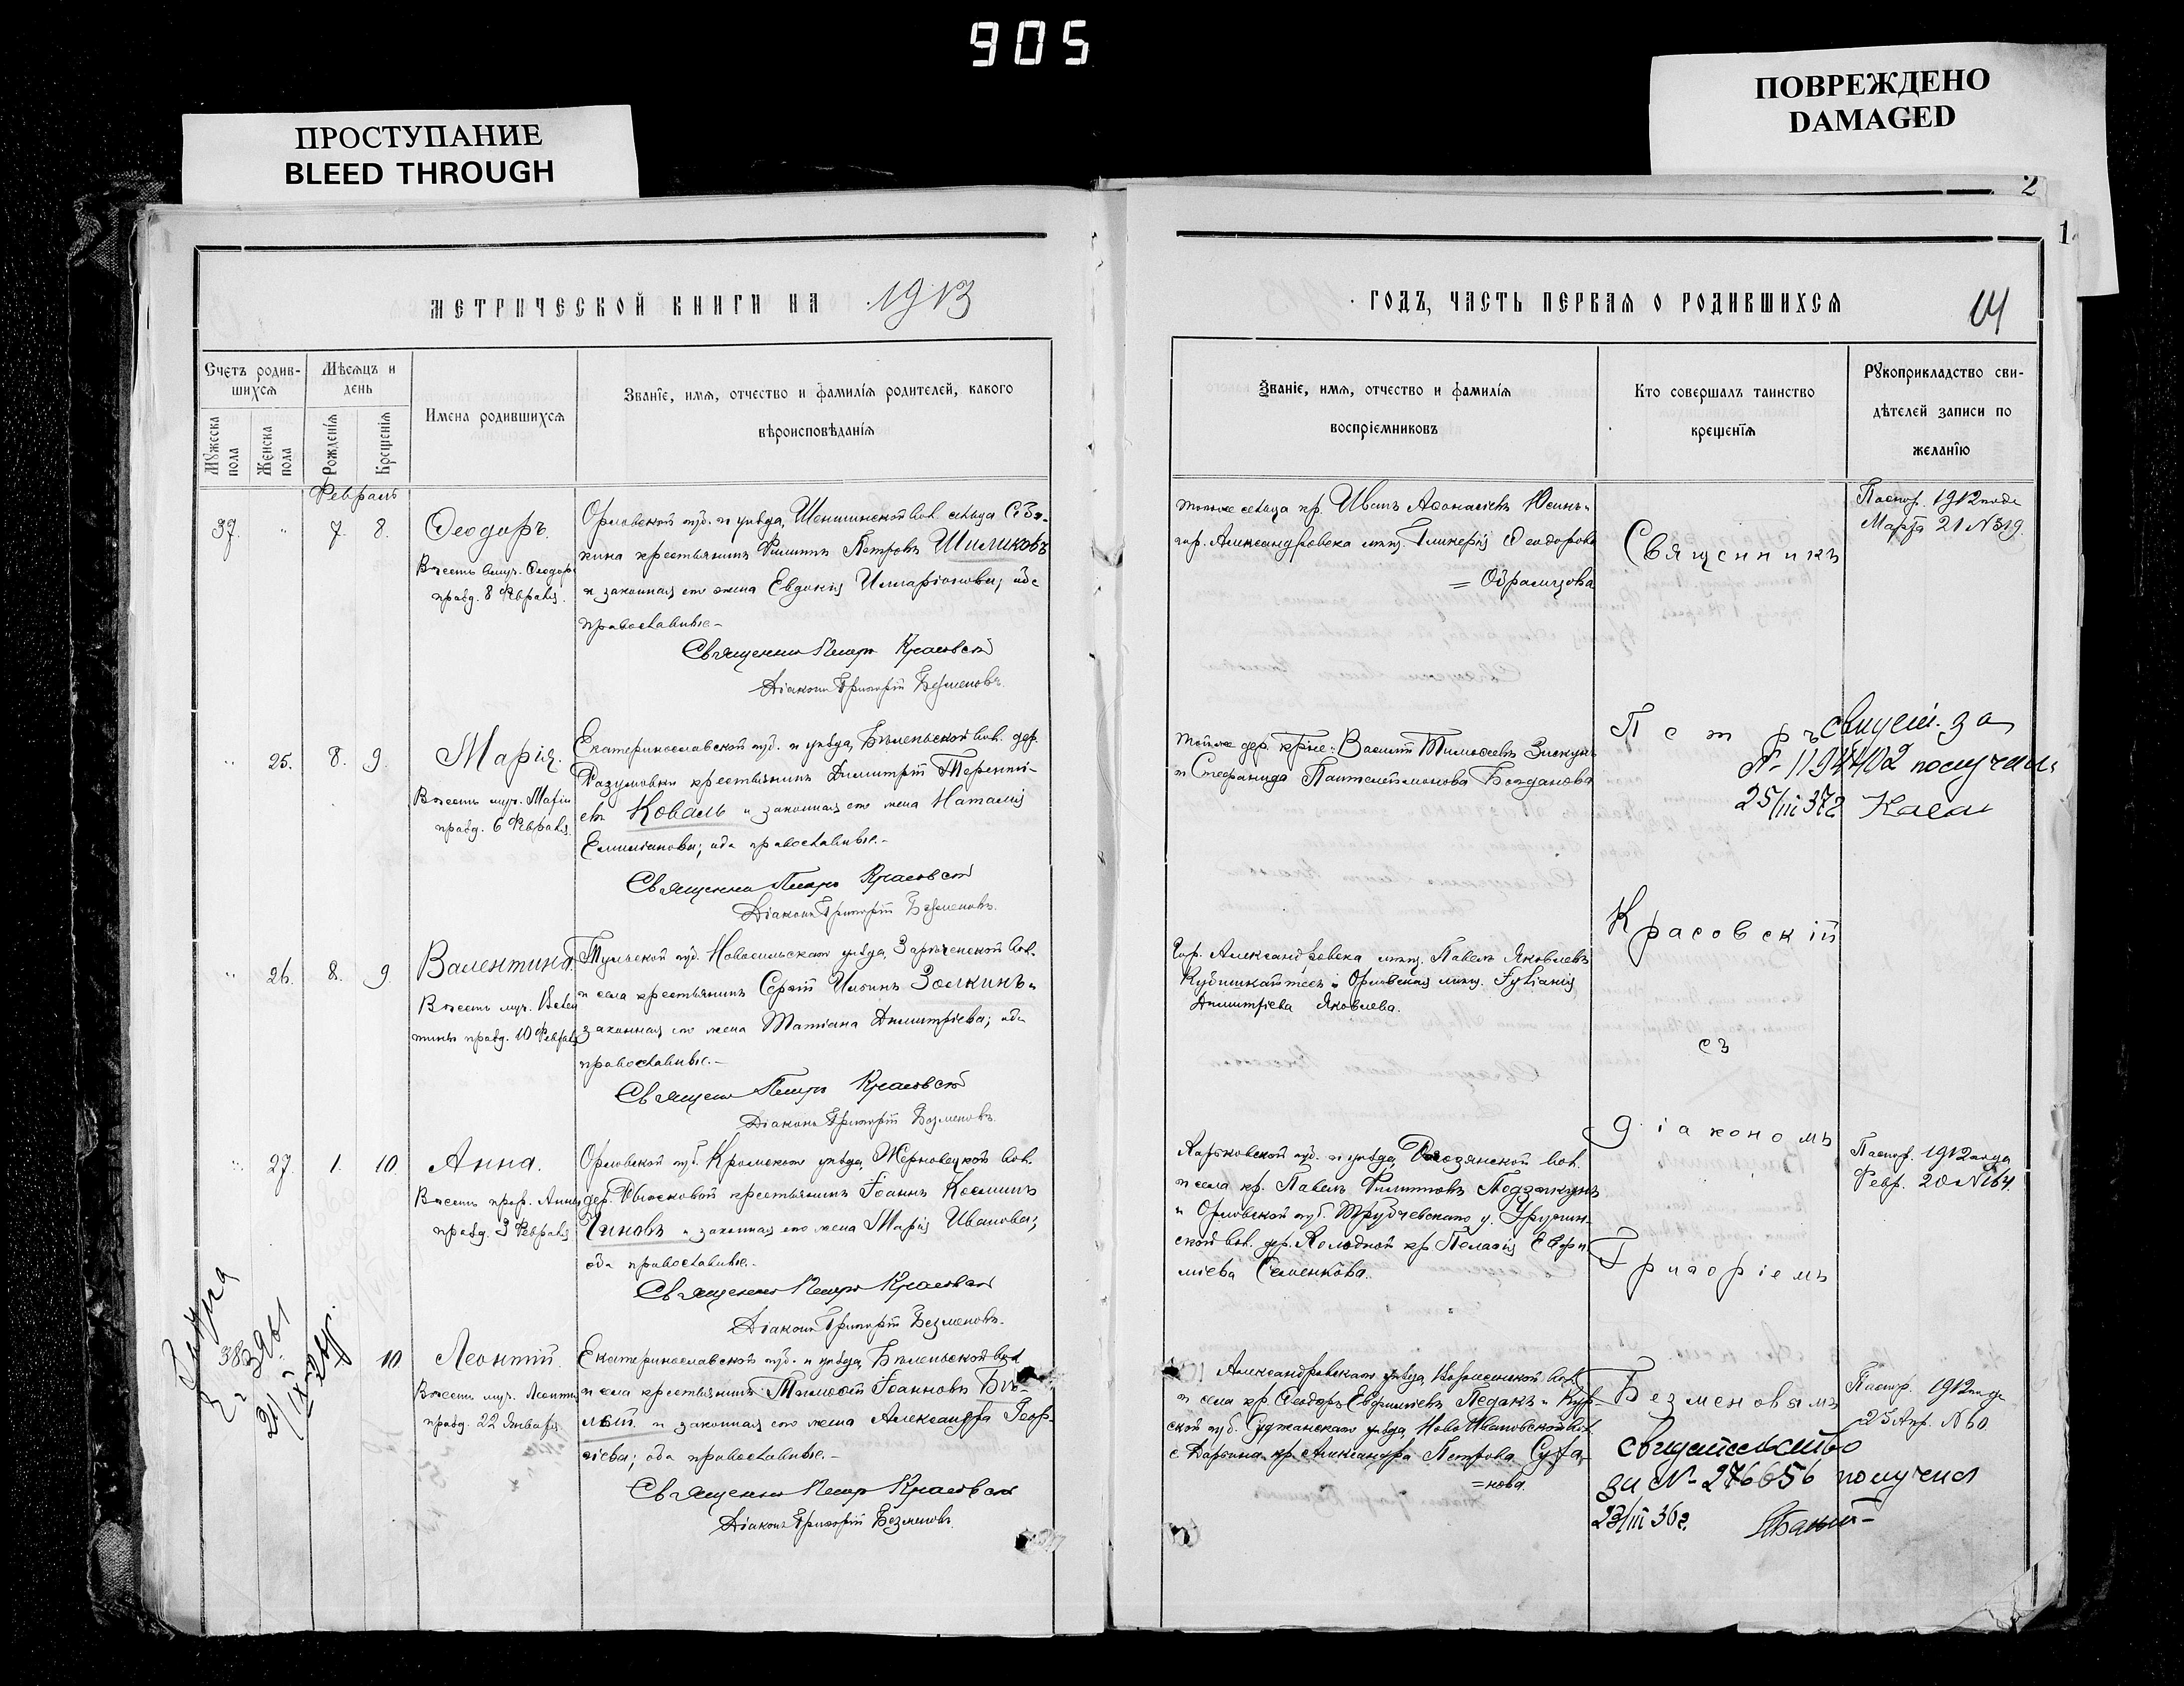 905
ПРОСТУПАНИЕ
BLEED THROUGH
ПОВРЕЖДЕНО
DAMAGED
2
1
МЕТРИЧЕСКОЙ КНИГИ НА 1913
Счетъ родив-
шихся
Мѣсяцъ и
день
Мужеска
пола
Женска
пола
Рожденія
Крещенія
Имена родившихся
Званіе, имя, отчество и фамилія родителей, какого
вѣроисповѣданія
Февраль
37.
7. 8.
Ѳеодоръ.
правд. 8 Февраля.
Орловской губ. и уѣзда, Шеншинской вол. сельца
кина крестьянинъ Филиппъ Петровъ Шиликовъ
и законная его жена Евдокія Илларіонова; оба
православные.-
Священникъ Петръ Красовскій
Діаконъ Григорій Безменовъ.
25. 8. 9.
Марія.
В честь муч. Марія
празд. 6 Февраля.
Екатеринославской губ. и уѣзда, Бѣленьской вол. дер.
Разумовки крестьянинъ Димитрій Терентьі-
евъ Коваль и законная его жена Наталія
Емиліанова; оба православные.-
Священникъ Петръ Красовскій
Діаконъ Григорій Безменовъ.
26. 8. 9.
Валентина.
В честь муч. Вален
тины празд. 10 Февраля
Тульской губ. Новосильскаго уѣзда, Зарѣченской вол.
и села крестьянинъ Сергій Ильинъ Золкинъ и
законная его жена Татіана Димитріева; оба
православные.-
Священникъ Петръ Красовскій
Діаконъ Григорій Безменовъ.
27. 1. 10
Анна.
В честь прор. Анны
празд. 3 Февраля
Орловской губ. Кромскаго уѣзда, Жерновецкой вол.
дер. крестьянинъ Іоаннъ Косминъ
Чиновъ и законная его жена Марія Иванова;
оба православные.
Священникъ Петръ Красовскій
Діаконъ Григорій Безменовъ.
10
Леонтій.
В честь муч. Леонтія
празд. 22 Января
Екатеринославской губ. и уѣзда, Бѣленьской вол.
и села крестьянинъ Тимоѳей Іоанновъ Бѣ-
лый и законная его жена Александра Геор-
гіева; оба православные.-
Священникъ Петръ Красовскій
Діаконъ Григорій Безменовъ.
ГОДЪ, ЧАСТЬ ПЕРВАЯ О РОДИВШИХСЯ
14
Званіе, имя, отчество и фамилія
воспріемниковъ
Кто совершалъ таинство
крещенія
Рукоприкладство сви-
дѣтелей записи по
желанію
того же сельца кр. Иванъ Аѳанасіевъ Юсинъ и
гор. Александровска мѣщ. Гликерія Ѳеодорова
= Образцова
Паспор. 1912 года
Марта 21 № 319.
Священникъ
того же дер. кр-не: Василій Тимоѳеевъ
и Стефанида Пантелеймонова Богданова
Петръ
свидет. за
№ 1194402 получил
25/III 37г
Гор. Александровска мѣщ. Павелъ Яковлевъ
и Орловская мѣщ. Іуліанія
Димитріева Яковлева.
Красовскій
съ
діакономъ
Харьковской губ. и уѣзда, вол.
и села кр. Павелъ Филипповъ
и Орловской губ. Трубчевскаго у.
ской вол. дер. Колодной кр. Пелагія Евфи-
міева Семенкова.
Паспор. 1912 года
Февр. 20 № 164.
Григоріемъ
Александровскаго уѣзда, вол.
и села кр. Ѳеодоръ Евфиміевъ Педакъ и Кур-
ской губ. Суджанскаго уѣзда, Ново Ивановской вол.
с. Дарьина кр. Александра Петрова
= нова.
Безменовымъ
Паспор. 1912 года
25 Апр. № 60
свидетельство
за № 276656 получил
23/III 36г.